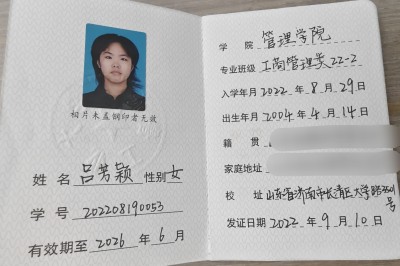 相片未盖钢印者无效
姓名 吕芳颖 性别 女
学号 202208190053
有效期至 2026年6月
学院 管理学院
专业班级 工商管理类22-2
入学年月 2022年8月29日
出生年月 2004年4月14日
籍贯
家庭地址
校址 山东省济南市长清区大学路3501号
发证日期 2022年9月10日